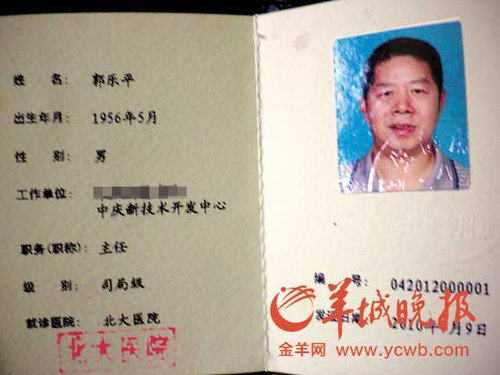 姓 名: 郭乐平
出生年月: 1956年5月
性 别: 男
工作单位:
中庆新技术开发中心
职务(职称): 主任
级 别: 司局级
就诊医院: 北大医院
北大医院
编 号: 042012000001
发证日期: 2010年 月9日
羊城晚报
金羊网 www.ycwb.com